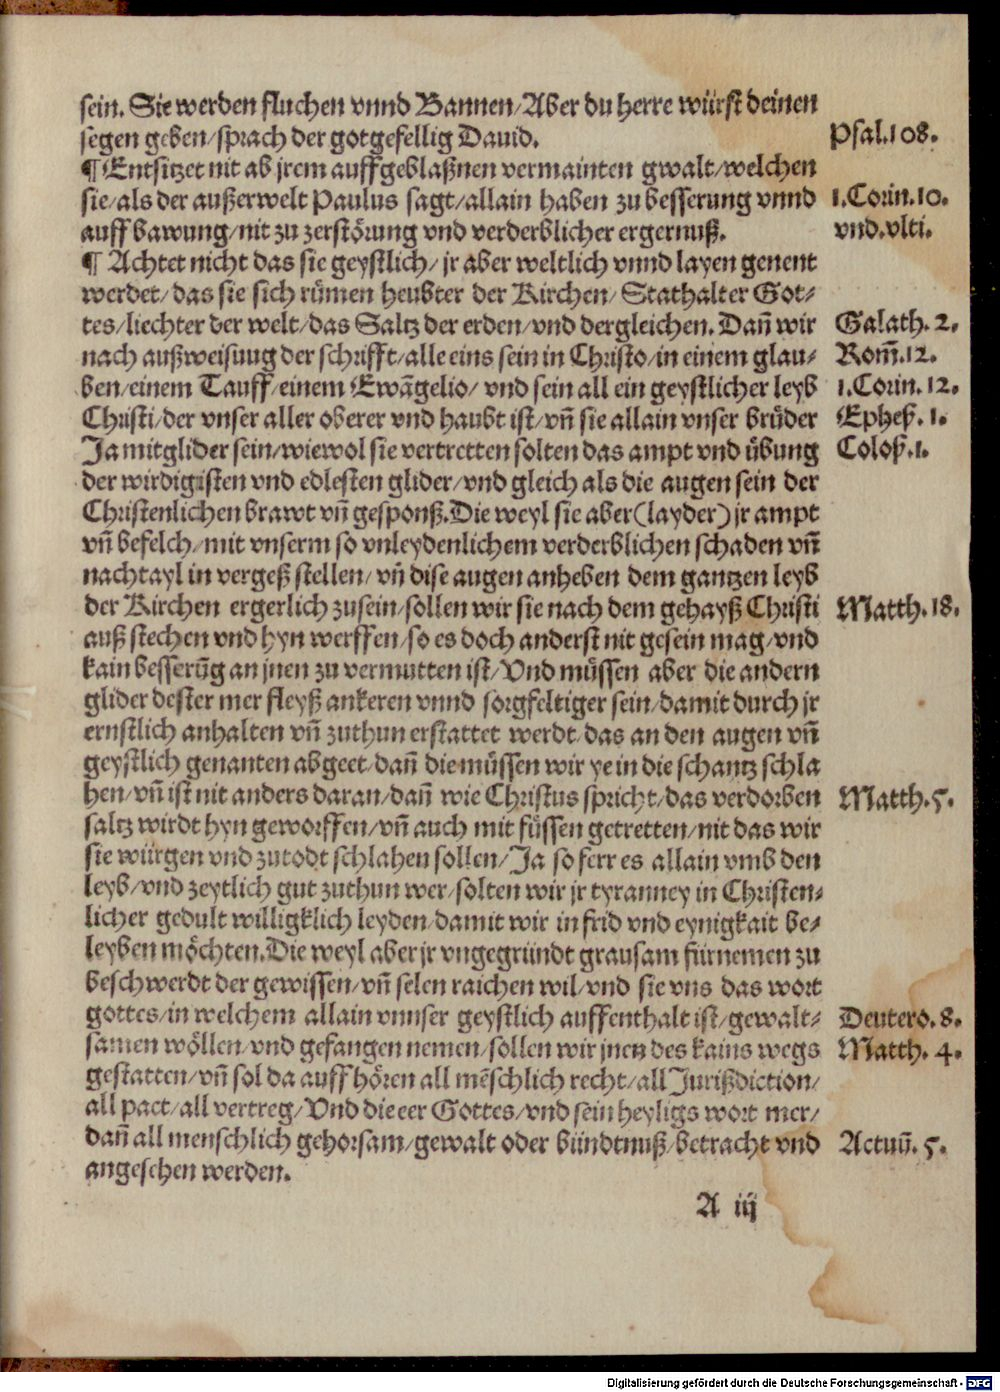 sein. Sie werden fluchen vnnd Bannen/Aber du herre würst deinen
segen geben/sprach der gotgefellig Dauid.
Psal.108.
¶ Entsitzet nit ab jrem auffgeblaßnen vermainten gwalt/welchen
sie/als der außerwelt Paulus sagt/allain haben zu besserung vnnd
1.Corin.10.
auffbawung/nit zu zerstörung vnd verderblicher ergernuß.
vnd.vlti.
¶ Achtet nicht das sie geystlich/ jr aber weltlich vnnd layen genent
werdet/das sie sich rümen heubter der Kirchen/ Stathalter Got⸗
tes/liechter der welt/das Saltz der erden/vnd dergleichen. Dañ wir
Galath. 2.
nach außweisuug der schrifft/alle eins sein in Christo/in einem glau⸗
Rom̃.12.
ben/einem Tauff/einem Ewãgelio/ vnd sein all ein geystlicher leyb
1.Corin. 12.
Christi/der vnser aller oberer vnd haubt ist/vñ sie allain vnser brüder
Epheß. 1.
Ja mitglider sein/wiewol sie vertretten solten das ampt vnd übung
Coloß.1.
der wirdigisten vnd edlesten glider/vnd gleich als die augen sein der
Christenlichen brawt vñ gesponß.Die weyl sie aber(layder)jr ampt
vñ befelch/mit vnserm so vnleydenlichem verderblichen schaden vñ
nachtayl in vergeß stellen/ vñ dise augen anheben dem gantzen leyb
der Kirchen ergerlich zusein/sollen wir sie nach dem gehayß Christi
Matth. 18.
auß stechen vnd hyn werffen/so es doch anderst nit gesein mag/vnd
kain besserũg an jnen zu vermutten ist/Vnd müssen aber die andern
glider dester mer fleyß ankeren vnnd sorgfeltiger sein/damit durch jr
ernstlich anhalten vñ zuthun erstattet werdt/das an den augen vñ
geystlich genanten abgeet/dañ die müssen wir ye in die schantz schla
hen/vñ ist nit anders daran/dañ wie Christus spricht/das verdorben
Matth.5.
saltz wirdt hyn geworffen/vñ auch mit füssen getretten/nit das wir
sie würgen vnd zutodt schlahen sollen/Ja so ferr es allain vmb den
leyb/vnd zeytlich gut zuthun wer/solten wir jr tyranney in Christen⸗
licher gedult willigklich leyden/damit wir in frid vnd eynigkait be⸗
leyben möchten.Die weyl aber jr vngegründt grausam fürnemen zu
beschwerdt der gewissen/vñ selen raichen wil/vnd sie vns das wort
gottes/in welchem allain vnnser geystlich auffenthalt ist/gewalt⸗
Deutero. 8.
samen wöllen/vnd gefangen nemen/sollen wir jnen des kains wegs
Matth. 4.
gestatten/vñ sol da auff hören all mẽschlich recht/all Jurißdiction/
all pact/all vertreg/Vnd die eer Gottes/vnd sein heyligs wort mer/
dañ all menschlich gehorsam/gewalt oder bündtnuß/betracht vnd
Actuũ. 5.
angesehen werden.
A iij
Digitalisierung gefördert durch die Deutsche Forschungsgemeinschaft - DFG